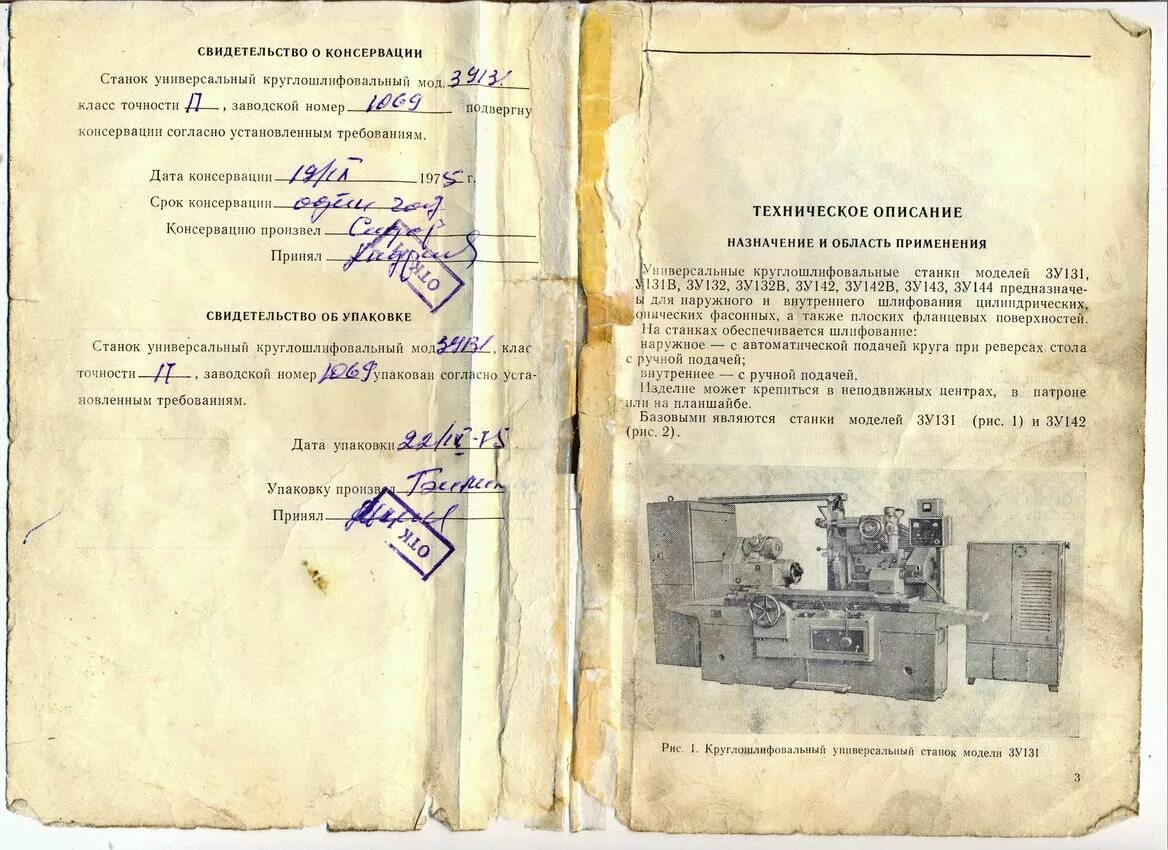 СВИДЕТЕЛЬСТВО О КОНСЕРВАЦИИ
Станок универсальный круглошлифовальный мод. 3У131
класс точности П, заводской номер 1069 подвергну
консервации согласно установленным требованиям.
Дата консервации 19/IX 1975 г.
Срок консервации один год
Консервацию произвел
Принял
ОТК
СВИДЕТЕЛЬСТВО ОБ УПАКОВКЕ
Станок универсальный круглошлифовальный мод 3У131, клас
точности П, заводской номер 1069 упакован согласно уста-
новленным требованиям.
Дата упаковки 22/IX-75
Упаковку произвел
Принял
ОТК
ТЕХНИЧЕСКОЕ ОПИСАНИЕ
НАЗНАЧЕНИЕ И ОБЛАСТЬ ПРИМЕНЕНИЯ
Универсальные круглошлифовальные станки моделей 3У131,
У131В, 3У132, 3У132В, 3У142, 3У142В, 3У143, 3У144 предназначе-
ы для наружного и внутреннего шлифования цилиндрических,
онических фасонных, а также плоских фланцевых поверхностей.
На станках обеспечивается шлифование:
наружное — с автоматической подачей круга при реверсах стола
с ручной подачей;
внутреннее — с ручной подачей.
Изделие может крепиться в неподвижных центрах, в патроне
или на планшайбе.
Базовыми являются станки моделей 3У131 (рис. 1) и 3У142
(рис. 2).
Рис. 1. Круглошлифовальный универсальный станок модели 3У131
3